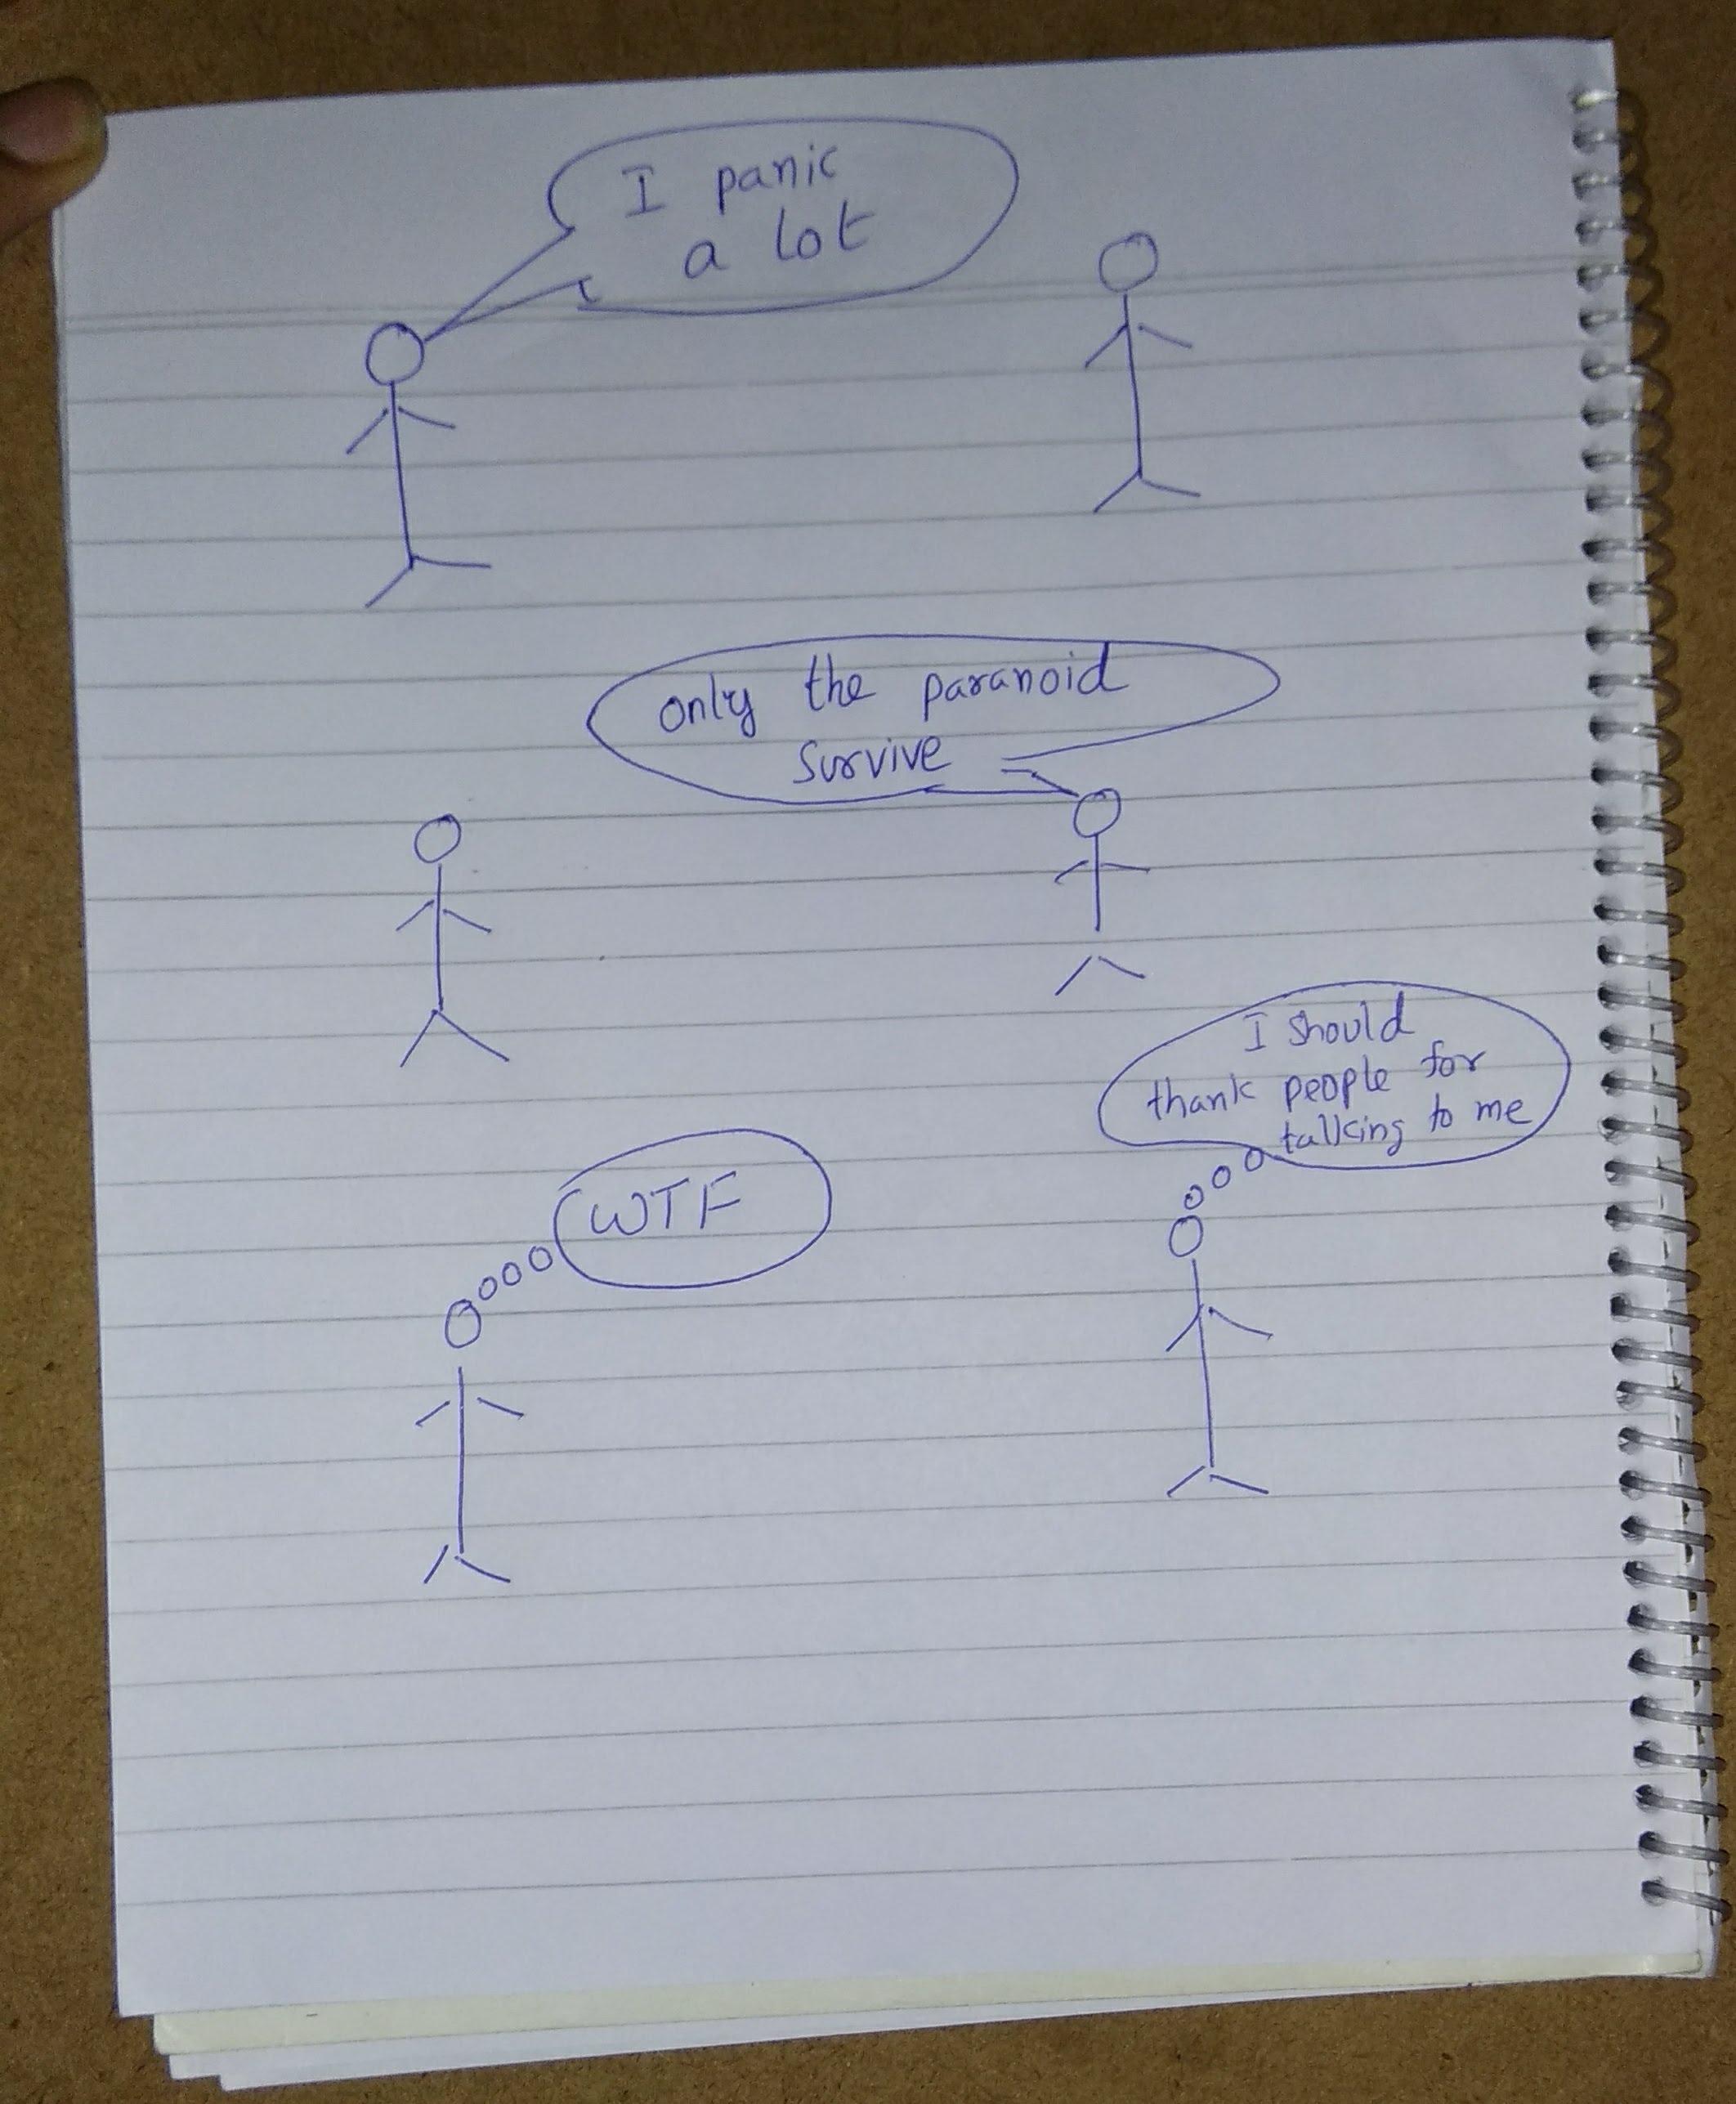 I panic
a lot
only the paranoid
survive
I should
thank people for
talking to me
WTF